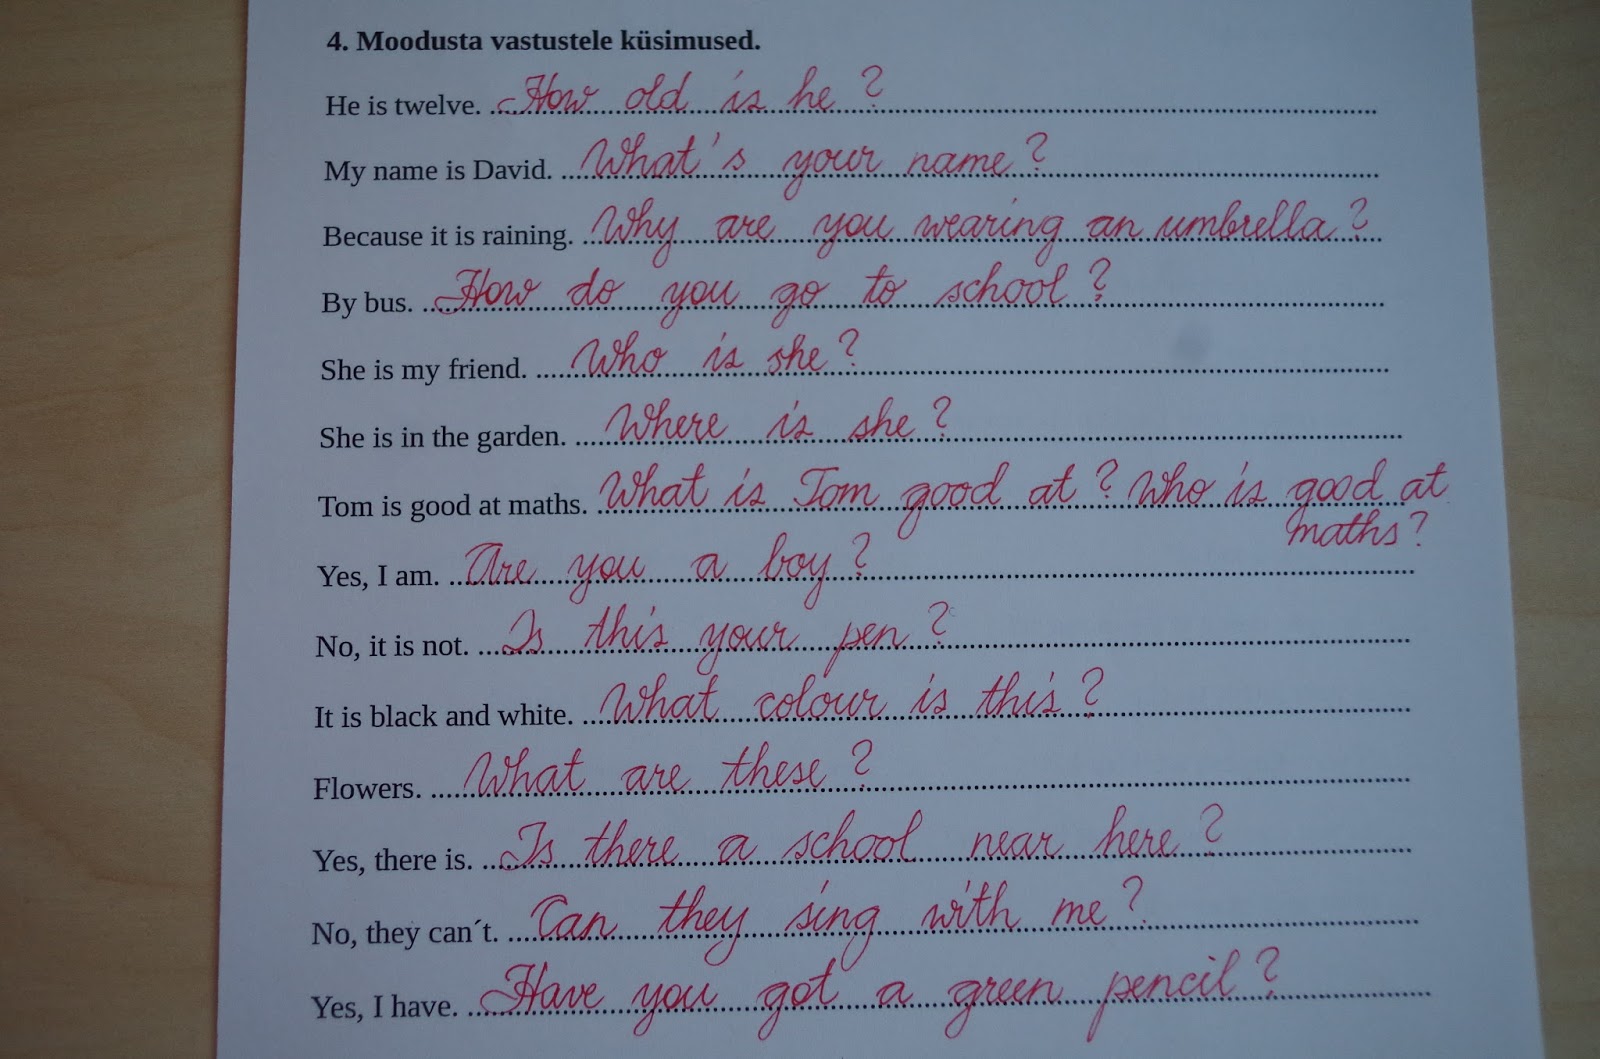 4. Moodusta vastustele küsimused.
He is twelve. How old is he?
My name is David. What's your name?
Because it is raining. Why are you wearing an umbrella?
By bus. How do you go to school?
She is my friend. Who is she?
She is in the garden. Where is she?
Tom is good at maths. What is Tom good at? Who is good at
maths?
Yes, I am. Are you a boy?
No, it is not. Is this your pen?
It is black and white. What colour is this?
Flowers. What are these?
Yes, there is. Is there a school near here?
No, they can´t. Can they sing with me?
Yes, I have. Have you got a green pencil?